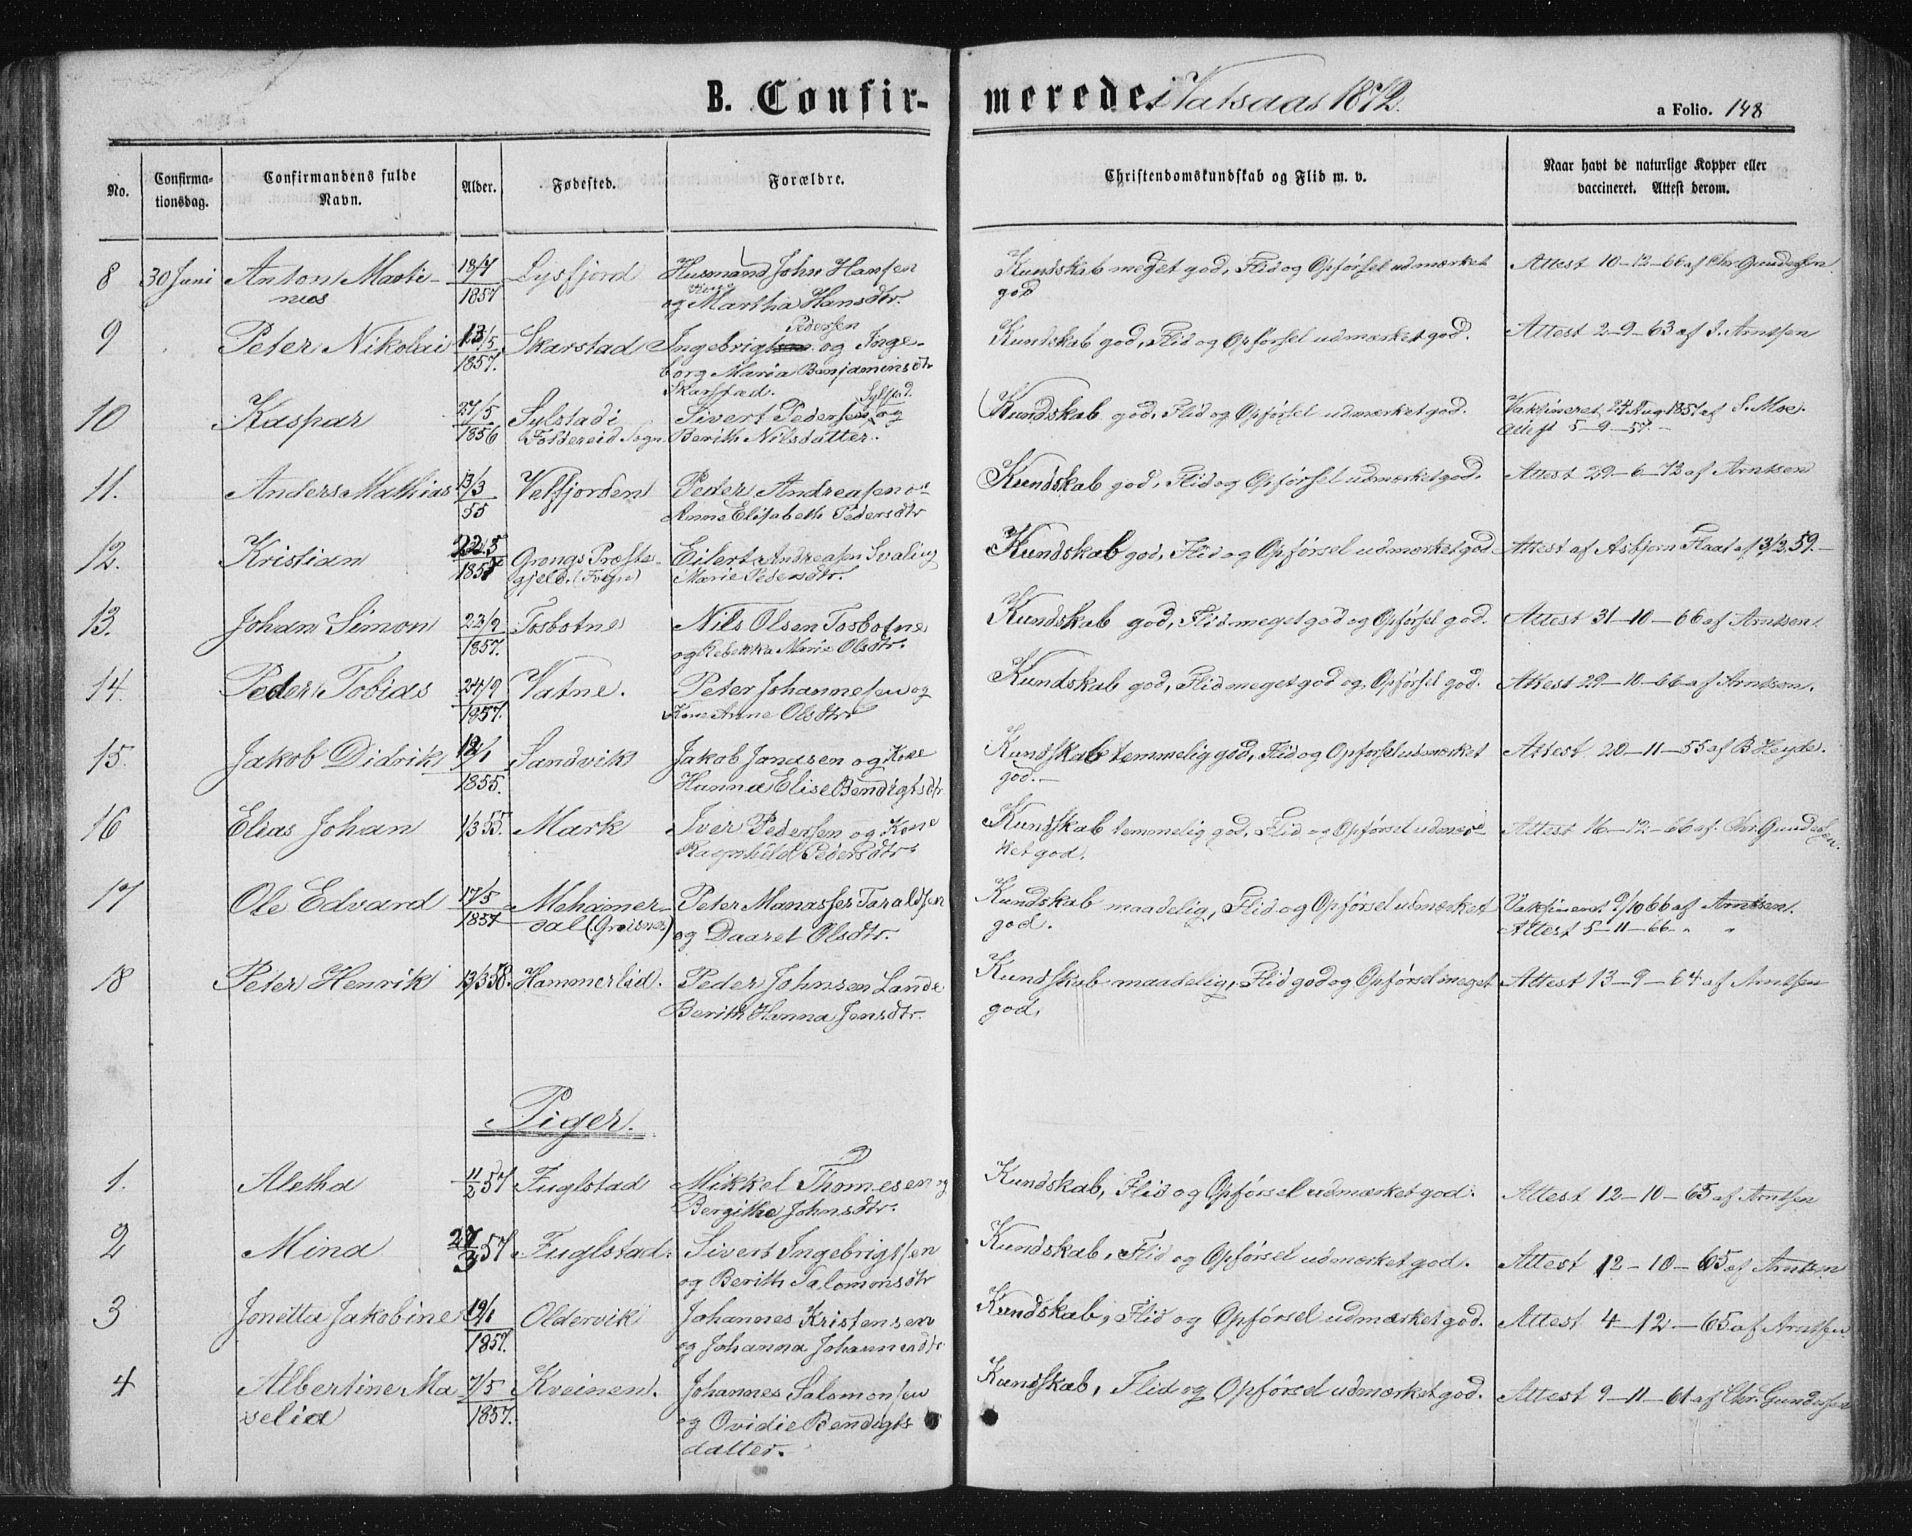 B. Confir-
merede i Vatsaas 1872.
a Folio. 148
No.
Confirma-
tionsdag.
Confirmandens fulde
Navn.
Alder.
Fødested.
Forældre.
Christendomskundskab og Flid m. v.
Naar havt de naturlige Kopper eller
vaccineret. Attest derom.
8 30 Juni Anton Marti- 18/7 Lysfjord Husmand John Hansen Kundskab meget god, Flid og Opførsel udmærket Attest 10-12-66 af Chr. Gundersen
nus 1857 og Kone Martha Hansdtr. god
9 Peter Nikolai 13/5 Skarstad Ingebrigt Pedersen og Inge- Kundskab god, Flid og Opførsel udmærket god. Attest 2-9-63 af S. Arntsen
1857. borg Maria Benjaminsdtr
Skarstad.
10 Kaspar 27/5 Sylstad i Sivert Pedersen Sylstad og Kundskab god, Flid og Opførsel udmærket god. Vakcineret 24 Aug 1857 af S. Moe.
1856 Foldereid Sogn Berith Nilsdatter. Attest 5-9-57.-
11. Anders Mathias 13/3 Velfjorden Peder Andreasen og Kundskab god, Flid og Opførsel udmærket god. Attest 29-6-72 af Arntsen
55 Anne Elisabeth Pedersdtr
12. Kristian 22/5 Grongs Præste- Eilert Andreasen Svaling Kundskab god, Flid og Opførsel udmærket god Attest af Asbjørn Flaat af 3/3 59.-
1857 gjeld. Marie Pedersdtr.
13. Johan Simon 23/9 Tosbotne Nils Olsen Tosbotne Kundskab god, Flid meget god og Opførsel god. Attest 31-10-66 af Arntsen.
1857. og Rebekka Marie Olsdtr.
14. Peder Tobias 24/9 Vatne. Peter Johannesen og Kundskab god, Flid meget god og Opførsel god. Attest 29-10-66 af Arntsen.
1857. Kone Anne Olsdtr
15. Jakob Didrik 12/1 Sandvik Jakob Jandsen og Kone Kundskab temmelig god, Flid og Opførsel udmærket Attest 20-11-55 af B. Heyde.
1855. Hanna Elise Bendigtsdtr god.-
16 Elias Johan 1/3 55. Mark Iver Pedersen og Kone Kundskab temmelig god, Flid og Opførsel udmær- Attest 16-12-66 af Chr. Gundersen.
Ragnhild Pedersdtr. ket god.
17 Ole Edvard 17/5 Mehamer- Peter Manasses Taraldsen Kundskab maadelig, Flid og Opførsel udmærket Vakcineret 9/10 66 af Arntsen.
1857 dal (Greisnes) og Daaret Olsdtr. god. Attest 5-11-66 " "
18 Peter Henrik 13/3 58. Hammerlid. Peder Johnsen Lande Kundskab maadelig, Flid god og Opførsel meget Attest 13-9-64 af Arntsen
Berith Hanna Jensdtr. god.
Piger.
1. Aletha 11/2 57 Fuglstad Mikkel Thomesen og Kundskab, Flid og Opførsel udmærket god. Attest 12-10-65 af Arntsen
Bergithe Johnsdtr.
2 Mina 27/3 57 Fuglstad. Sivert Ingebrigtsen Kundskab, Flid og Opførsel udmærket god. Attest 12-10-65 af Arntsen
og Berith Salomonsdtr
3 Jonetta Jakobine 19/1 Oldervik Johannes Kristensen Kundskab, Flid og Opførsel udmærket god. Attest 4-12-65 af Arntsen
1857. og Johanna Johannesdtr
4 Albertine Ma- 7/5 Kveinen. Johannes Salomonsen Kundskab, Flid og Opførsel udmærket god. Attest 9-11-61 af Chr. Gundersen
selia 1857. og Ovidie Bendigts
datter.